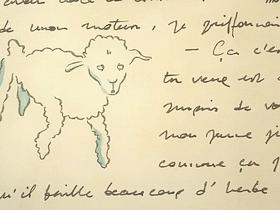 de mon moteur, je griffonnai
— Ça c'es
tu veux est d
surpris de vo
mon jeune ju
comme ça
qu'il faille beaucoup d'herbe